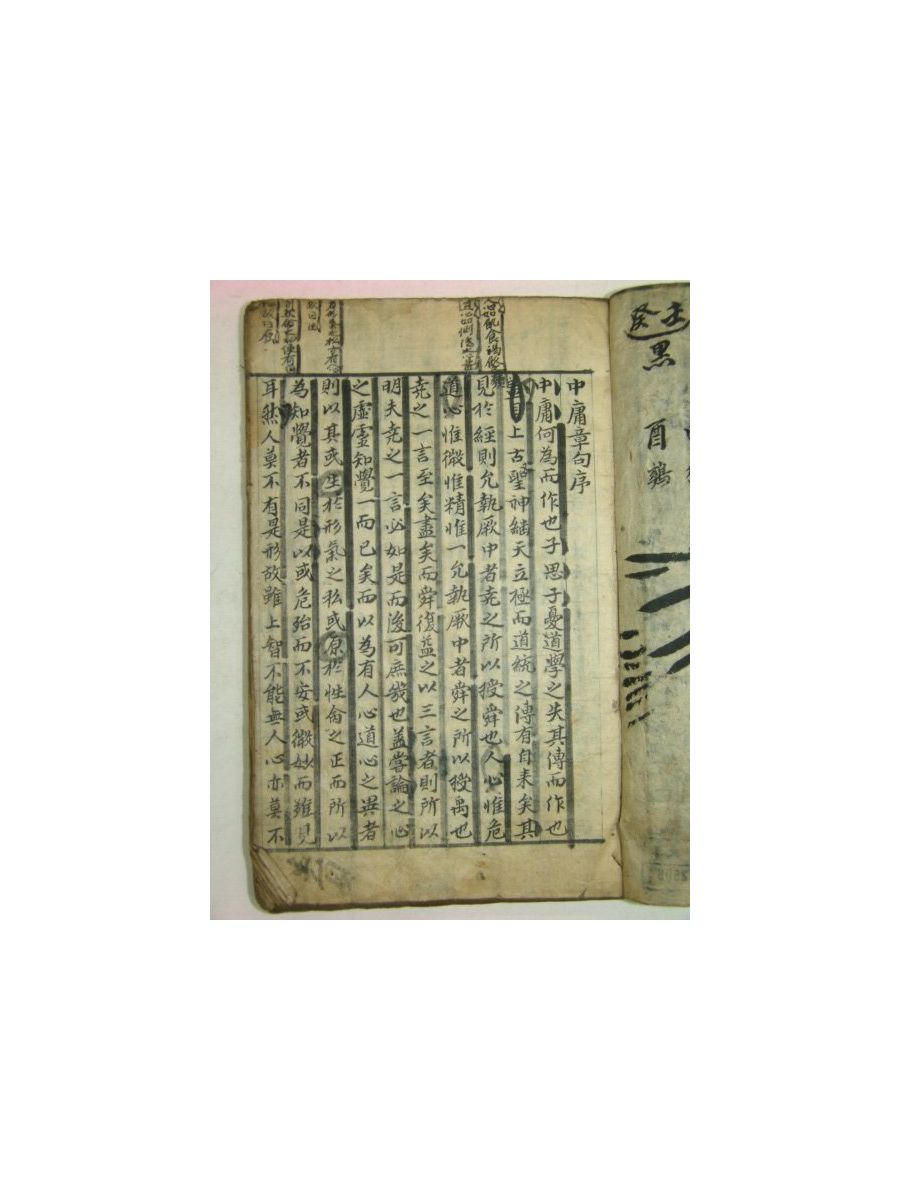 壬癸
黑
酉鷄
中庸章句序
中庸何為而作也子思子憂道學之失其傳而作也
盖自上古聖神繼天立極而道統之傳有自来矣其
見於經則允執厥中者尭之所以授舜也人心惟危
道心惟微惟精惟一允執厥中者舜之所以授禹也
尭之一言至矣盡矣而舜復益之以三言者則所以
明夫尭之一言必如是而後可庶幾也盖嘗論之心
之虛灵知覺一而已矣而以為有人心道心之異者
則以其或生於形氣之私或原於性命之正而所以
為知覺者不同是以或危殆而不安或微妙而難見
耳然人莫不有是形故雖上智不能無人心亦莫不
心如飢食渴飮